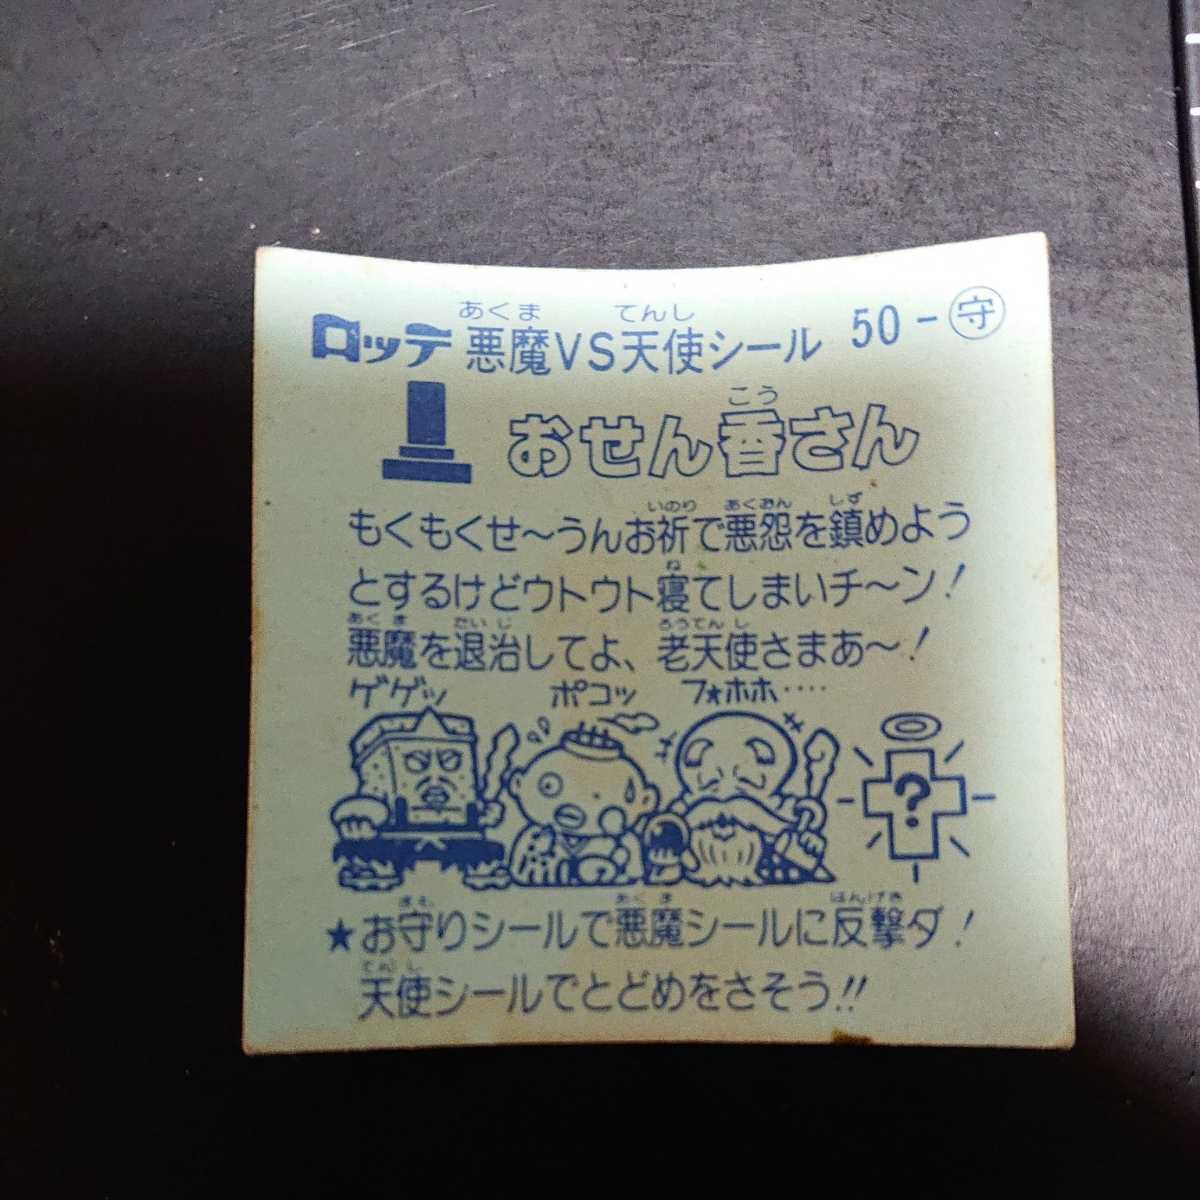 あくま てんし
ロッテ 悪魔VS天使シール 50-守
こう
おせん香さん
いのり あくおん しず
もくもくせ〜うんお祈で悪怨を鎮めよう
ね
とするけどウトウト寝てしまいチ〜ン!
あくま たいじ ろうてんし
悪魔を退治してよ、老天使さまあ〜!
ゲゲッ ポコッ フ★ホホ‥‥
?
まも あくま はんげき
★お守りシールで悪魔シールに反撃ダ!
てんし
天使シールでとどめをさそう!!